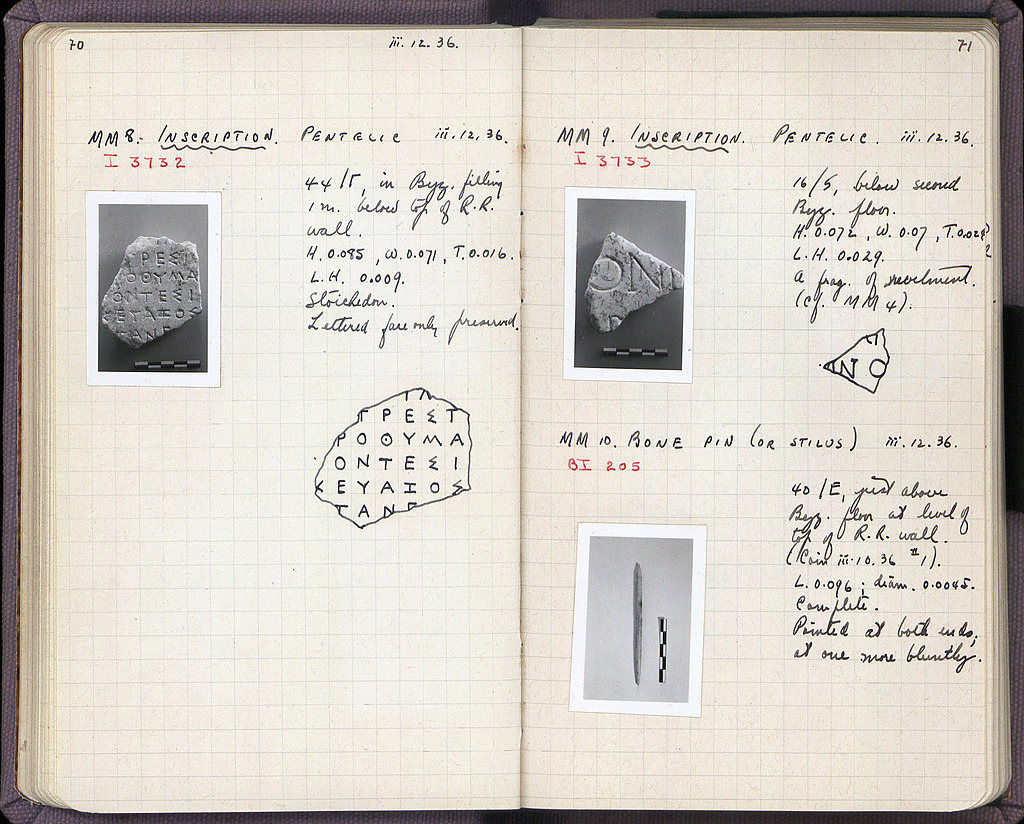 70
iii. 12. 36.
MM 8. INSCRIPTION. PENTELIC iii. 12. 36.
I 3732
44/Γ, in Byz. filling
1 m. below top of R.R.
wall.
H. 0.085, W. 0.071, T. 0.016.
L.H. 0.009.
Stoichedon.
Lettered face only preserved.
ΓΡΕΣΤ
ΡΟΘΥΜΑ
ΟΝΤΕΣΙ
ΚΕΥΑΙΟΣ
ΤΑΝΓ
71
MM 9. INSCRIPTION. PENTELIC. iii. 12. 36.
I 3733
16/5, below second
Byz. floor.
H. 0.072, W. 0.07, T. 0.028?
L.H. 0.029.
A frag. of revetment.
(Cf. MM 4).
ΝΟ
MM 10. BONE PIN (OR STILUS) iii. 12. 36.
BI 205
40/E, just above
Byz. floor at level of
top of R.R. wall.
(Coin iii. 10. 36 #1).
L. 0.096; diam. 0.0045.
Complete.
Pointed at both ends;
at one more bluntly.